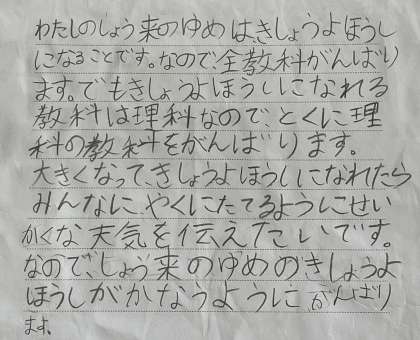 わたしのしょう来のゆめは、きしょうよほうし
になることです。なので、全教科がんばり
ます。でもきしょうよほうしになれる
教科は理科なので、とくに理
科の教科をがんばります。
大きくなって、きしょうよほうしになれたら
みんなに、やくにたてるようにせい
かくな天気を伝えたいです。
なので、しょう来のゆめのきしょうよ
ほうしがかなうようにがんばり
ます。